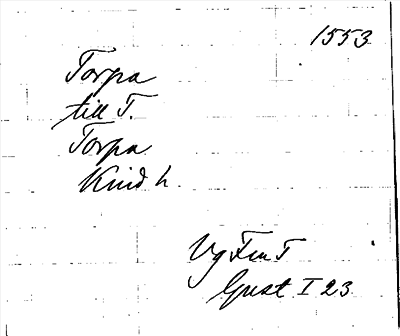 1553
Torpa
till T.
Torpa
Kind h.
Vg Fru T
Gust I 23